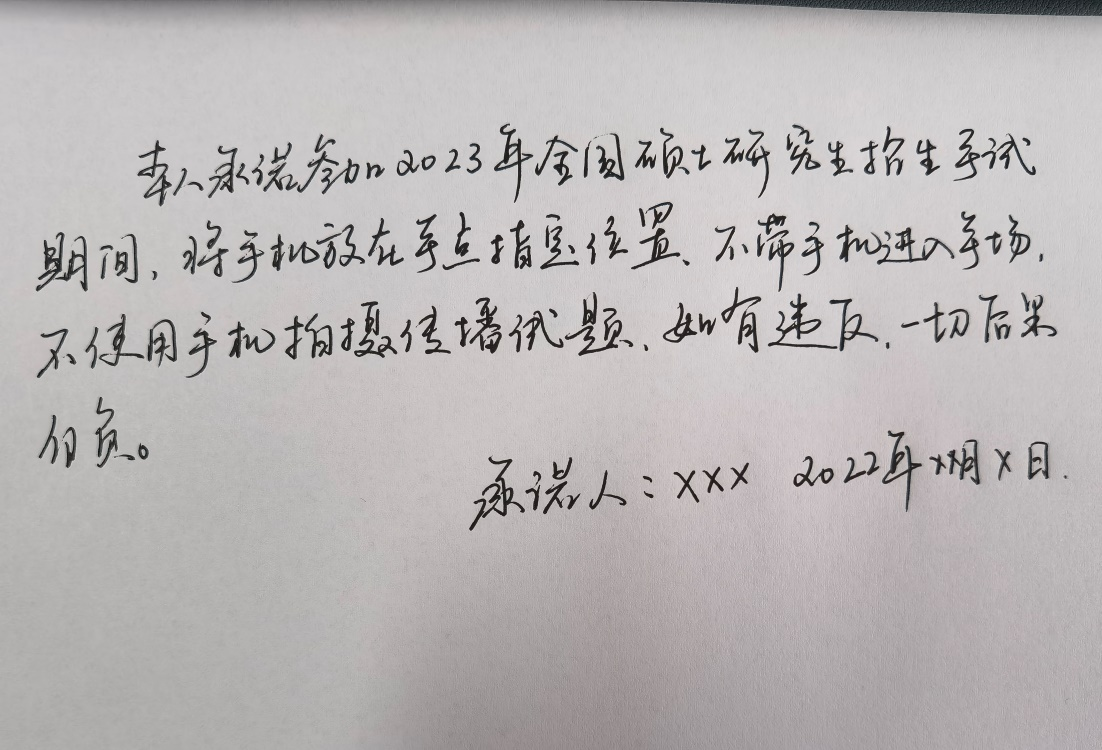 本人承诺参加2023年全国硕士研究生招生考试
期间,将手机放在考点指定位置、不带手机进入考场,
不使用手机拍摄传播试题、如有违反,一切后果
自负。
承诺人:××× 2022年××月×日.